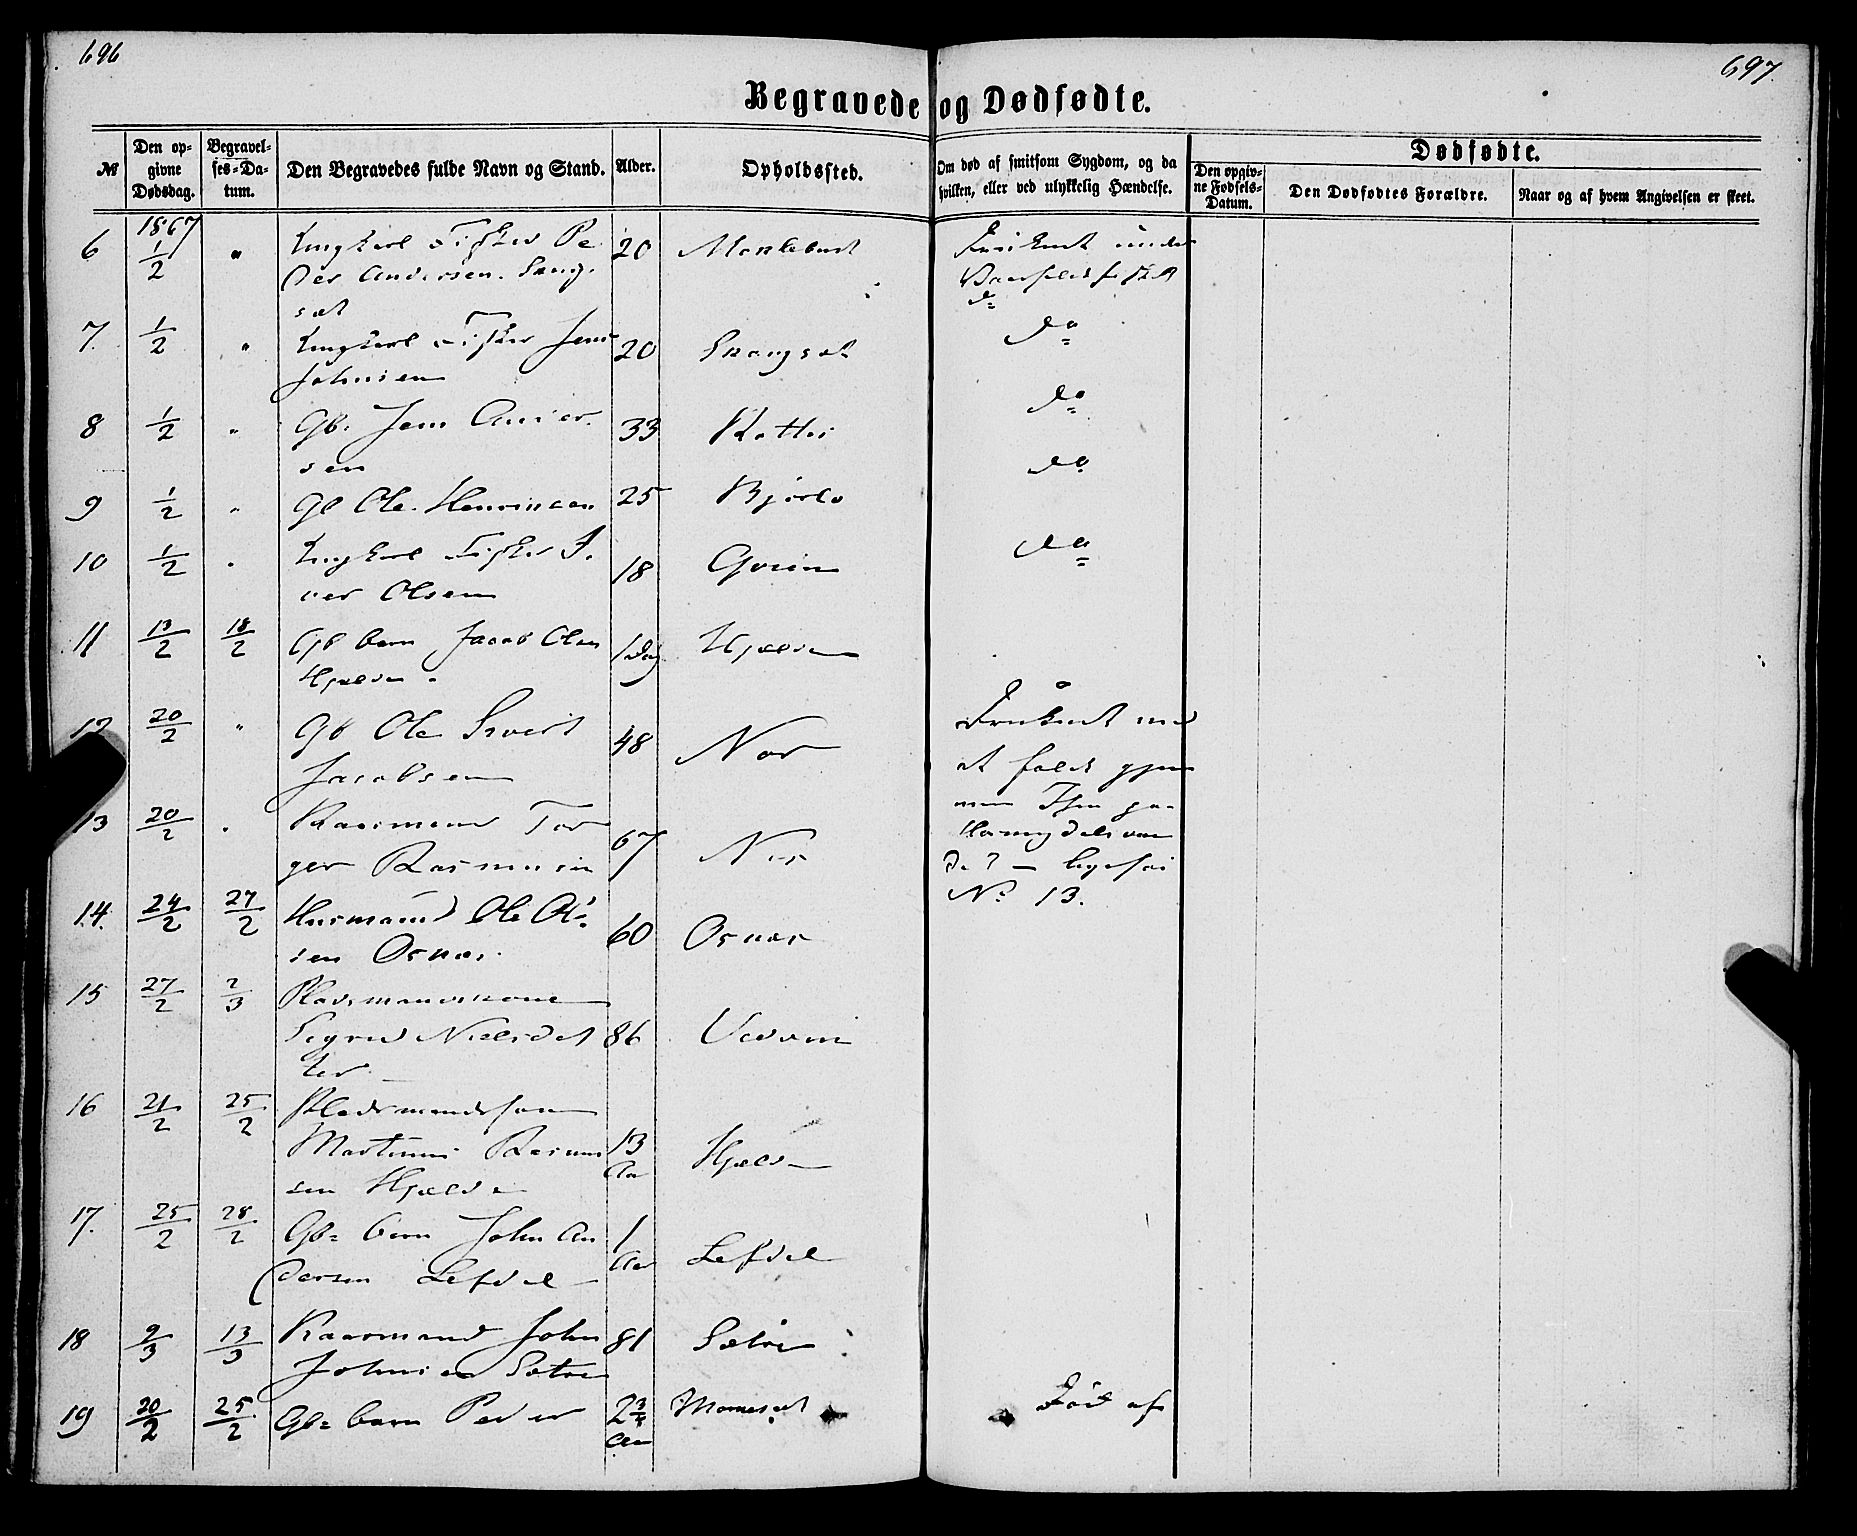 696
697.
Begravede og Dødfødte.
№
Den op-
givne
Dødsdag.
Begravel-
ses-Da-
tum.
Den Begravedes fulde Navn og Stand.
Alder.
Opholdssted.
Om død af smitsom Sygdom, og da
hvilken, eller ved ulykkelig Hændelse.
Dødfødte.
Den opgiv-
ne Fødsels-
Datum.
Den Dødfødtes Forældre.
Naar og af hvem Angivelsen er skeet.
1867
6 1/2 " Ungkarl Fisker Pe
der Andersen 20
under
Vaarsildefisket
7. 1/2 " Ungkarl Fisker Jens
Johnsen 20 do
8 1/2 " Gb. Jens Anders
sen 33 do
9 1/2 " Gb Ole 25 do
10 1/2 " Ungkarl Fisker I
ver Olsen 18 do
11 13/2 18/2 Gb barn Jacob Olsen
Hjelle 1 Dag Hjelle
12 20/2 " Gb Ole Sivert
Jacobsen 48 Nor
Druknet ved
at falde gjen
nem Isen paa
13 20/2 " Kaarmand Tor
ger Rasmusen 67 Nor
N° 13.
14. 24/2 27/2 Husmand Ole Ol-
sen Osnes 60 Osnes
15 27/2 2/3 Pladsmandskone
Sigrid Nielsdat
ter 86
16 21/2 25/2 Pladsmandssøn
Martinus Rasmus
sen Hjelle 13 Aar Hjelle
17. 25/2 28/2 Gb= barn John An
dersen Lefdal 1 Aar Lefdal
18 9/3 13/3 Kaarmand John
Johnsen Sætre 81 Sætre
19 20/2 25/2 Gb= barn Peder 2 3/4 Aar
Død af